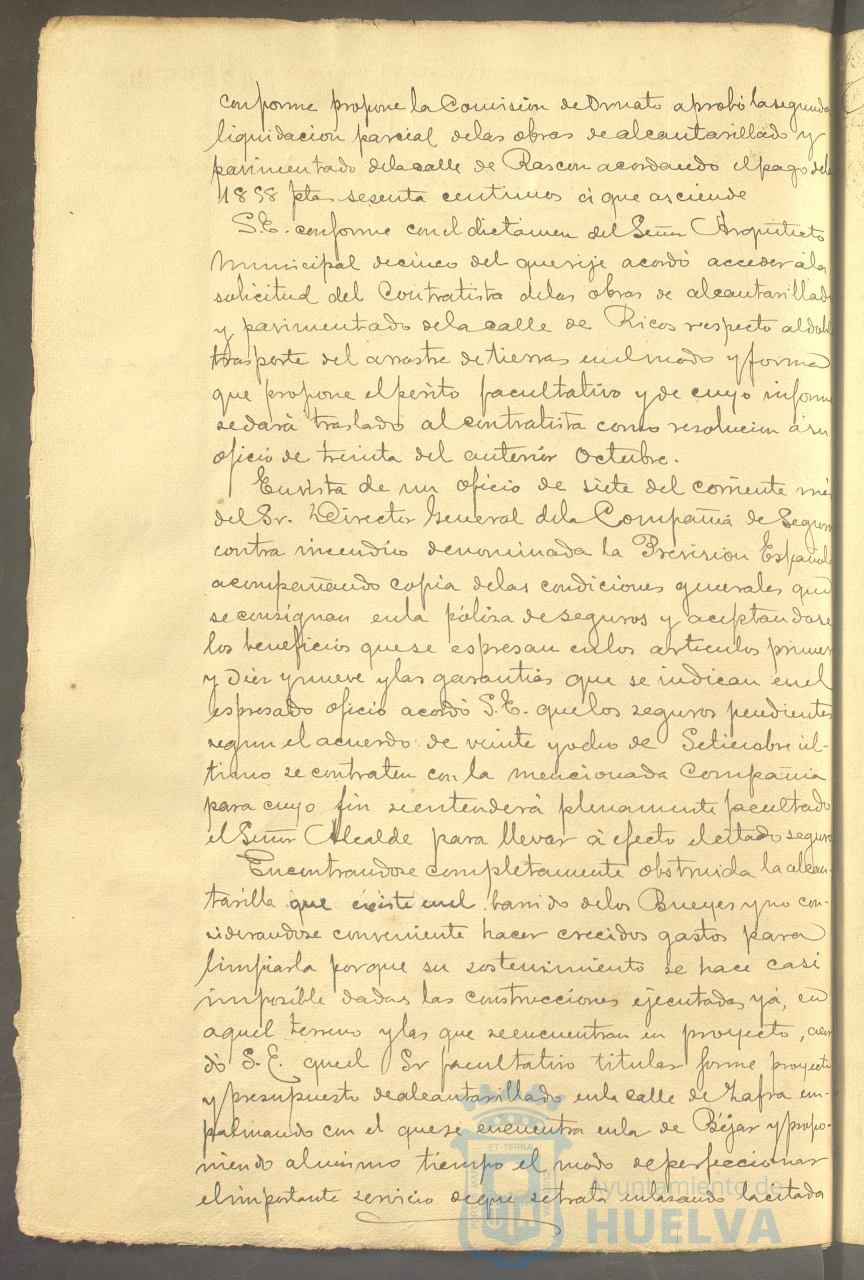 conforme propone la Comision de Ornato aprobó la segunda
liquidacion parcial delas obras de alcantarillado y
pavimentado dela calle de Rascon acordando el pago dela
1858 ptas sesenta centimos á que asciende
S.E. conforme con el dictámen del Señor Arquitecto
Municipal de cinco del que rije acordó acceder á la
solicitud del Contratista delas obras de alcantarillado
y pavimentado dela calle de Ricos respecto al doble
trasporte del arrastre de tierras en el modo y forma
que propone el perito facultativo y de cuyo informe
se dará traslado al contratista como resolucion á su
oficio de treinta del anterior Octubre.
En vista de un oficio de siete del corriente mes
del Sr. Director General dela Compañia de Seguros
contra incendio denominada la Prevision Española
acompañando copia delas condiciones generales que
se consignan en la póliza de seguros y aceptandose
los beneficios que se espresan en los articulos primero
y Diez y nueve y las garantias que se indican en el
espresado oficio acordó S.E. que los seguros pendientes
segun el acuerdo de veinte y ocho de Setiembre úl-
timo se contraten con la mencionada Compañia
para cuyo fin se entenderá plenamente facultado
el Señor Alcalde para llevar á efecto el citado seguro
Encontrandose completamente obstruida la alcan-
tarilla que existe en el barrio delos Bueyes y no con-
siderandose conveniente hacer crecidos gastos para
limpiarla porque su sostenimiento se hace casi
imposible dadas las construcciones ejecutadas yá, en
aquel terreno y las que se encuentran en proyecto, acor
dó S.E. que el Sr facultativo titular forme proyecto
y presupuesto de alcantarillado en la calle de Zafra em-
palmando con el que se encuentra en la de Béjar y propo-
niendo al mismo tiempo el modo de perfeccionar
el importante servicio de que se trata enlazando la citada
Ayuntamiento de
HUELVA